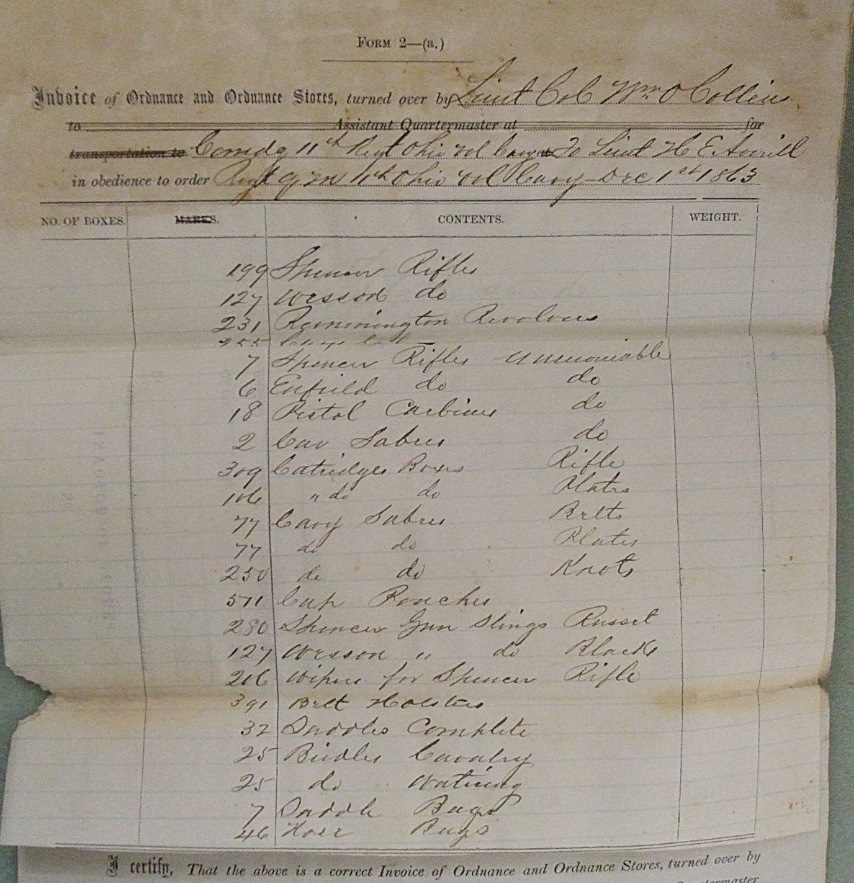 FORM 2—(a.)
Invoice of Ordnance and Ordnance Stores, turned over by Lieut Col Wm O Collins
to Assistant Quartermaster at for
transportation to Comdg 11th Regt Ohio Vol Cavy To Lieut H E Averill
in obedience to order Regt Q M 11th Ohio Vol Cavy Dec 1st 1863
NO. OF BOXES. MARKS. CONTENTS. WEIGHT.
199 Spencer Rifles
127 Wesson do
231 Remmington Revolvers
7 Spencer Rifles unserviceable
6 Enfield do do
18 Pistol Carbines do
2 Cav Sabres do
309 Catridges Boxes Rifle
106 " do do Plates
77 Cavy Sabres Belts
77 do do Plates
250 do do Knots
511 Cap Pouches
280 Spencer Gun Slings Russet
127 Wesson " do Black
216 Wipers for Spencer Rifle
391 Belt Holsters
32 Saddles Complete
25 Bridles Cavalry
25 do Watering
7 Saddle Bags
46 Bags
I certify, That the above is a correct Invoice of Ordnance and Ordnance Stores, turned over by